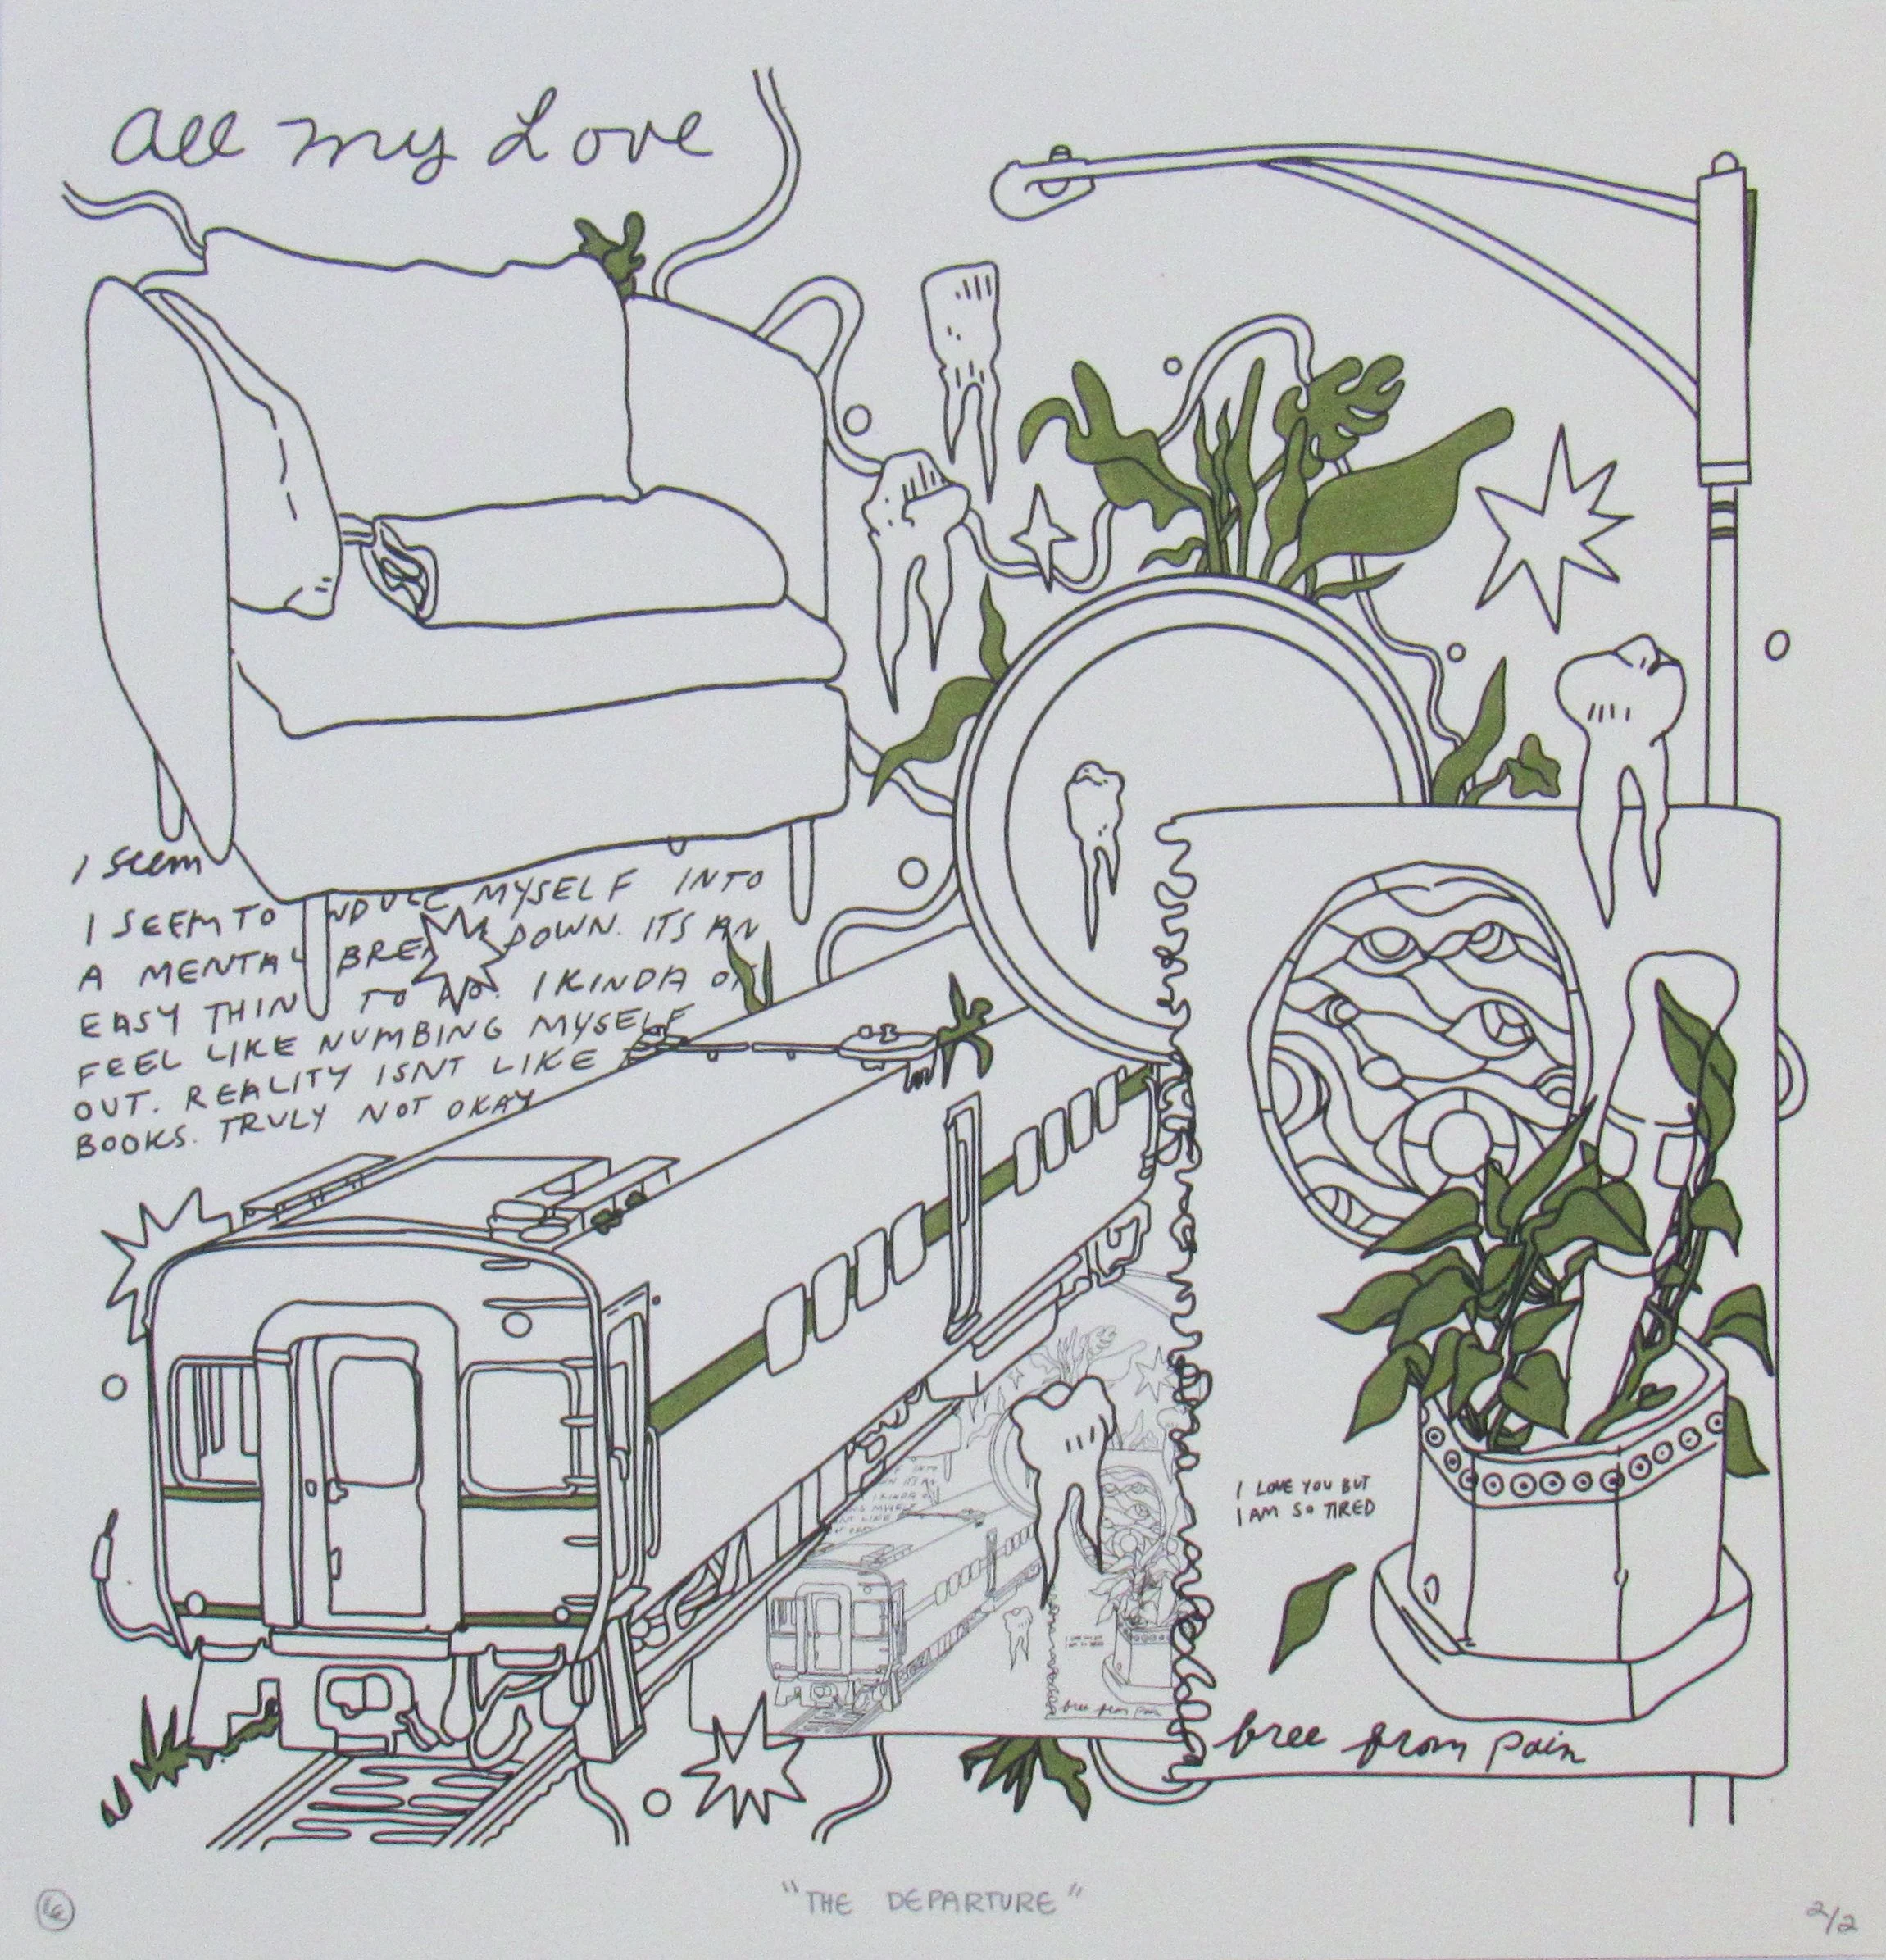 All my Love
I seem
I SEEM TO INDUCE MYSELF INTO
A MENTAL BREAKDOWN. ITS AN
EASY THING TO DO. I KINDA
FEEL LIKE NUMBING MYSELF
OUT. REALITY ISNT LIKE
BOOKS. TRULY NOT OKAY
I LOVE YOU BUT
I AM SO TIRED
free from pain
free from pain
"THE DEPARTURE"
2/2